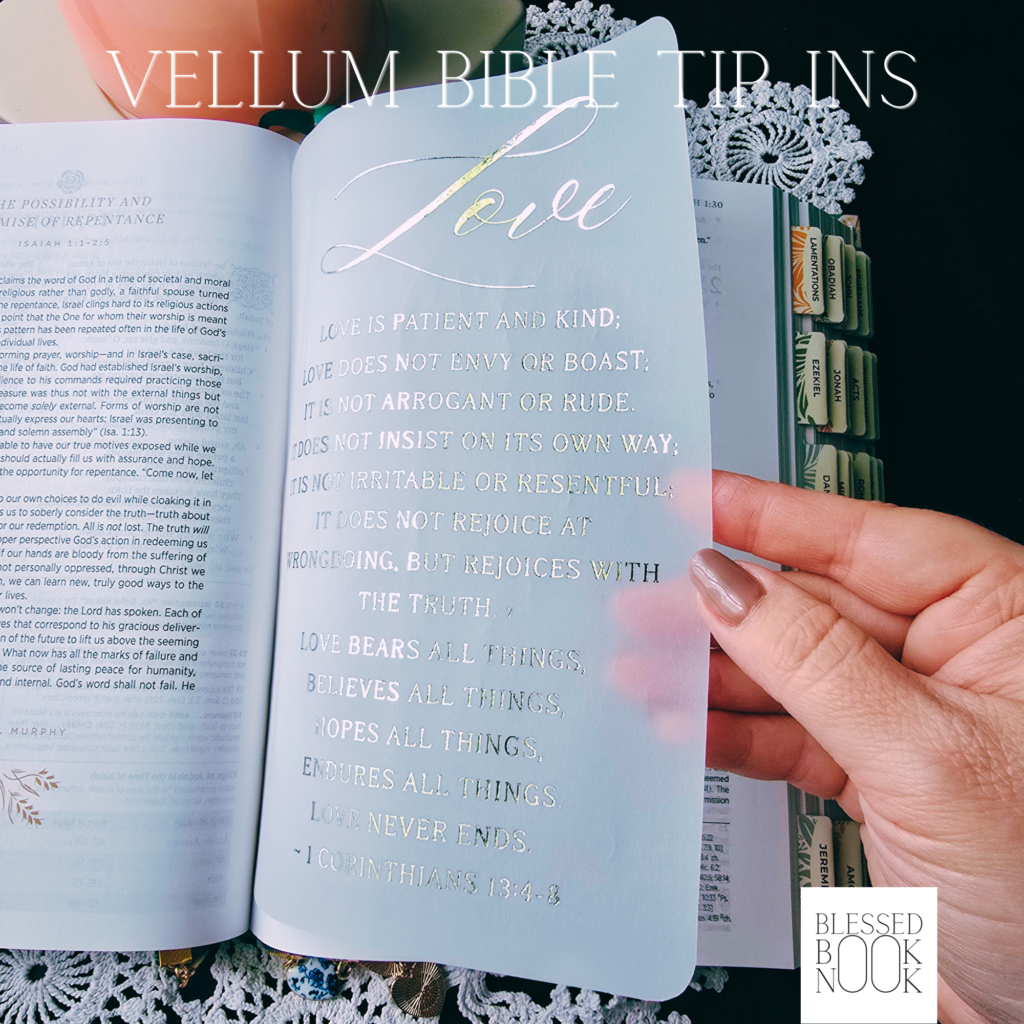 VELLUM BIBLE TIP INS
HE POSSIBILITY AND
MISE OF REPENTANCE
ISAIAH 1:1–2:5
claims the word of God in a time of societal and moral
religious rather than godly, a faithful spouse turned
he repentance, Israel clings hard to its religious actions
point that the One for whom their worship is meant
s pattern has been repeated often in the life of God's
dividual lives.
orming prayer, worship—and in Israel's case, sacri-
he life of faith. God had established Israel's worship,
lience to his commands required practicing those
easure was thus not with the external things but
become solely external. Forms of worship are not
tually express our hearts: Israel was presenting to
and solemn assembly” (Isa. 1:13).
able to have our true motives exposed while we
should actually fill us with assurance and hope,
the opportunity for repentance. “Come now, let
o our own choices to do evil while cloaking it in
s us to soberly consider the truth—truth about
or our redemption. All is not lost. The truth will
oper perspective God's action in redeeming us
if our hands are bloody from the suffering of
not personally oppressed, through Christ we
n, we can learn new, truly good ways to the
r lives.
won't change: the Lord has spoken. Each of
ves that correspond to his gracious deliver-
n of the future to lift us above the seeming
What now has all the marks of failure and
he source of lasting peace for humanity,
nd internal. God's word shall not fail. He
MURPHY
Love
LOVE IS PATIENT AND KIND;
LOVE DOES NOT ENVY OR BOAST;
IT IS NOT ARROGANT OR RUDE.
IT DOES NOT INSIST ON ITS OWN WAY;
IT IS NOT IRRITABLE OR RESENTFUL;
IT DOES NOT REJOICE AT
WRONGDOING, BUT REJOICES WITH
THE TRUTH.
LOVE BEARS ALL THINGS,
BELIEVES ALL THINGS,
HOPES ALL THINGS,
ENDURES ALL THINGS.
LOVE NEVER ENDS.
~1 CORINTHIANS 13:4-8
H 1:30
LAMENTATIONS
OBADIAH
EZEKIEL
JONAH
ACTS
DAN
JEREMI
AMO
eemed
. The
mission
BLESSED
BOOK
NOOK